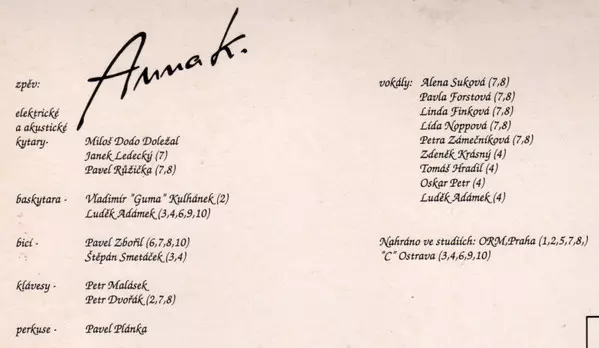 zpěv: Anna K.
elektrické
a akustické
kytary- Miloš Dodo Doležal
Janek Ledecký (7)
Pavel Růžička (7,8)
baskytara - Vladimír "Guma" Kulhánek (2)
Luděk Adámek (3,4,6,9,10)
bicí - Pavel Zbořil (6,7,8,10)
Štěpán Smetáček (3,4)
klávesy - Petr Malásek
Petr Dvořák (2,7,8)
perkuse - Pavel Plánka
vokály: Alena Suková (7,8)
Pavla Forstová (7,8)
Linda Finková (7,8)
Lída Noppová (7,8)
Petra Zámečníková (7,8)
Zdeněk Krásný (4)
Tomáš Hradil (4)
Oskar Petr (4)
Luděk Adámek (4)
Nahráno ve studiích: ORM,Praha (1,2,5,7,8,)
"C" Ostrava (3,4,6,9,10)